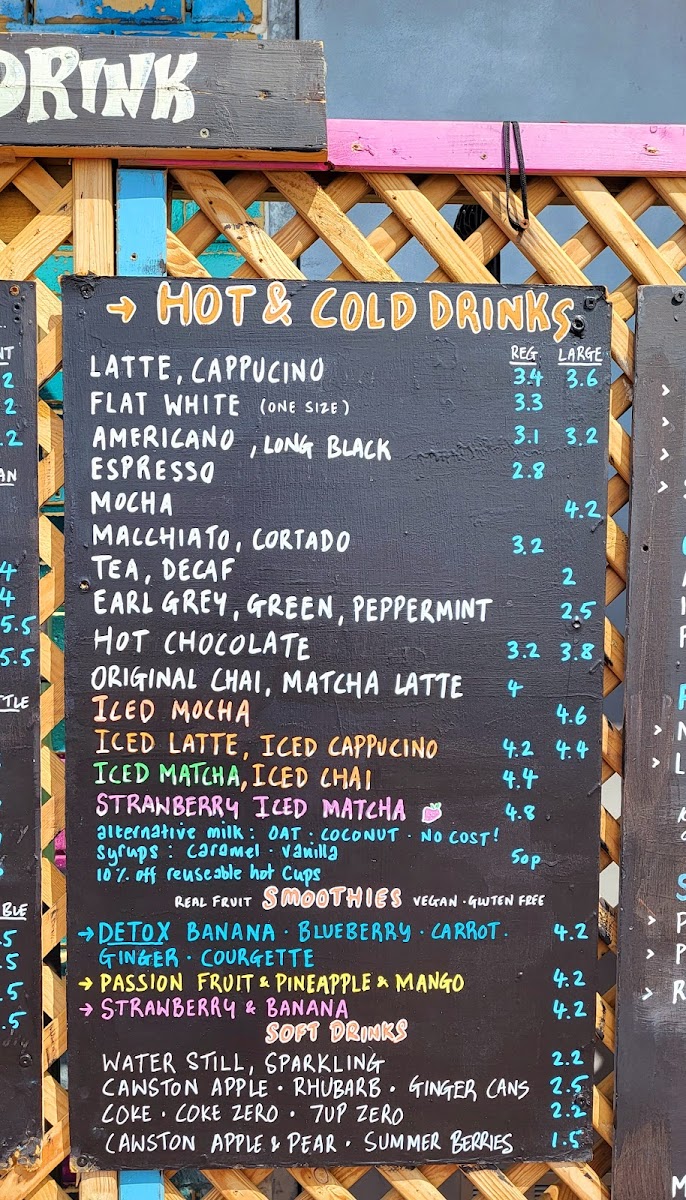 DRINK
→ HOT & COLD DRINKS
REG LARGE
LATTE, CAPPUCINO 3.4 3.6
FLAT WHITE (ONE SIZE) 3.3
AMERICANO, LONG BLACK 3.1 3.2
ESPRESSO 2.8
MOCHA 4.2
MACCHIATO, CORTADO 3.2
TEA, DECAF 2
EARL GREY, GREEN, PEPPERMINT 2.5
HOT CHOCOLATE 3.2 3.8
ORIGINAL CHAI, MATCHA LATTE 4
ICED MOCHA 4.6
ICED LATTE, ICED CAPPUCINO 4.2 4.4
ICED MATCHA, ICED CHAI 4.4
STRAWBERRY ICED MATCHA 4.8
alternative milk: OAT · COCONUT · NO COST!
Syrups: Caramel · Vanilla 50p
10% off reuseable hot Cups
REAL FRUIT SMOOTHIES VEGAN · GLUTEN FREE
→ DETOX BANANA · BLUEBERRY · CARROT · 4.2
GINGER · COURGETTE
→ PASSION FRUIT & PINEAPPLE & MANGO 4.2
→ STRAWBERRY & BANANA 4.2
SOFT DRINKS
WATER STILL, SPARKLING 2.2
CAWSTON APPLE · RHUBARB · GINGER CANS 2.5
COKE · COKE ZERO · 7UP ZERO 2.2
CAWSTON APPLE & PEAR · SUMMER BERRIES 1.5